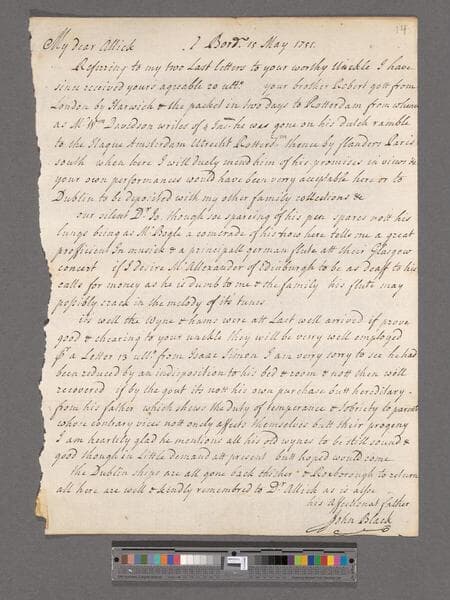 14
My dear Allick A Bordx. 15 May 1751.
Refering to my two Last letters to your worthy Unckle I have
since received yours agreable 20 ultо. your brother Robert gott from
London by Harwich & the packet in two days to Rotterdam from whence
as Mr. Wm. Davidson writes of 4 he was gone on his dutch ramble
to the Hague Amsterdam Utrecht Rotterdm. thence by flanders Paris
south when here I will duely mend him of his promises in views &
your own performances would have been verry acceptable here or to
Dublin to be deposited with my other family collections &c
our silent Dr. Jo. though soe spareing of his pen spares nott his
lungs being as Mr. Bogle a comerade of his now here tells me a great
profficient In musick & a principall german flute att their Glasgow
concert if I desire Mr. Allexander of Edinburgh to be as deaff to his
calls for money as he is dumb to me & the family his flute may
possibly crack in the melody of its tunes
its well the wyne & hams were att Last well arrived if prove
good & chearing to your unckle they will be verry well employed
pr. a Letter 13 ullo. from Isaac Simon I am verry sorry to see he had
been reduced by an indisposition to his bed & room & nott then well
recovered if by the gout its nott his own purchase butt hereditary
from his father which shews the duty of temperance & sobriety to parents
whose contrary vices nott onely affects themselves butt their progeny
I am heartily glad he mentions all his old wynes to be still sound &
good though in Little demand att present butt hoped would come
the Dublin ships are all gone back thither & Roxborough to return
all here are well & kindly remembred to Dr. Allick as is alsoe
his affectionat father
John Black